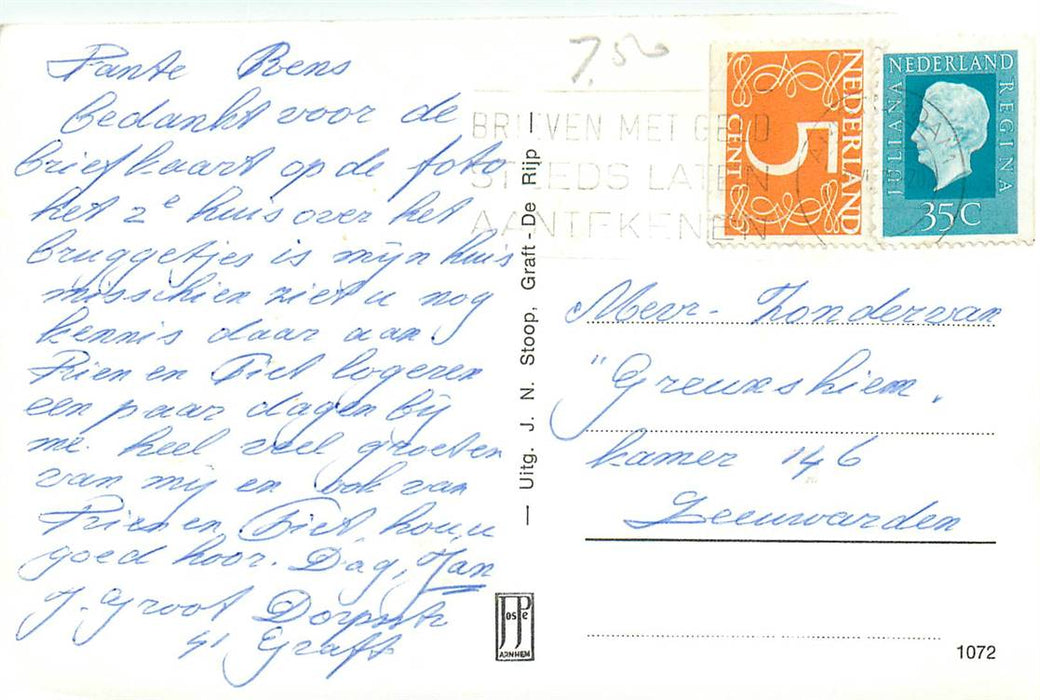 Tante Rens
bedankt voor de
briefkaart op de foto
het 2e huis over het
bruggetjes is mijn huis
misschien ziet u nog
kennis daar aan.
Rien en Piet logeren
een paar dagen bij
me. heel veel groeten
van mij en ook van
Rien en Piet, hou, u
goed hoor. Dag, Jan
J. Groot Dorpstr
41 Graft
7.50
BRIEVEN MET GELD
STEEDS LATEN
AANTEKENEN
NEDERLAND
5
CENT
NEDERLAND
JULIANA
REGINA
35C
— Uitg. J. N. Stoop, Graft - De Rijp —
Mevr. Zondervan
"Greunshiem.
kamer 146
Leeuwarden
JosPe
ARNHEM
1072